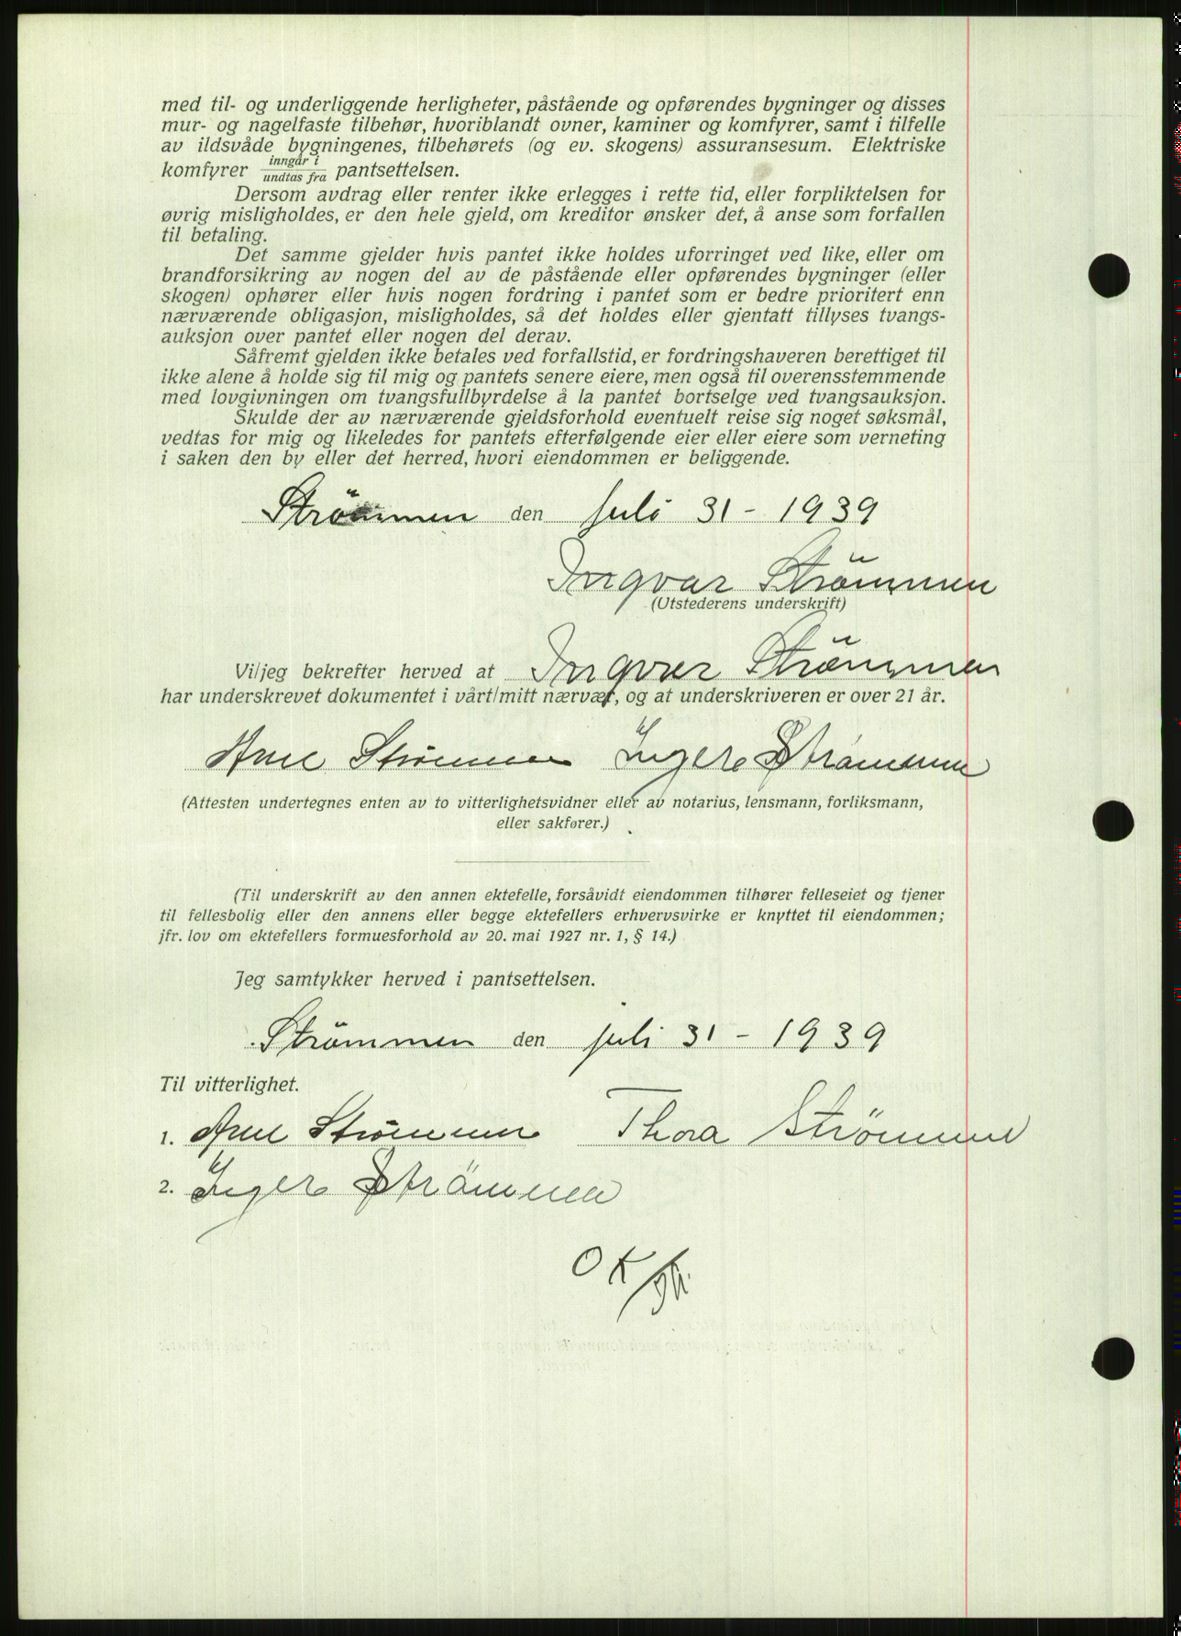 med til- og underliggende herligheter, påstående og opførendes bygninger og disses
mur- og nagelfaste tilbehør, hvoriblandt ovner, kaminer og komfyrer, samt i tilfelle
av ildsvåde bygningenes, tilbehørets (og ev. skogens) assuransesum. Elektriske
komfyrer inngår i / undtas fra pantsettelsen.
Dersom avdrag eller renter ikke erlegges i rette tid, eller forpliktelsen for
øvrig misligholdes, er den hele gjeld, om kreditor ønsker det, å anse som forfallen
til betaling.
Det samme gjelder hvis pantet ikke holdes uforringet ved like, eller om
brandforsikring av nogen del av de påstående eller opførendes bygninger (eller
skogen) ophører eller hvis nogen fordring i pantet som er bedre prioritert enn
nærværende obligasjon, misligholdes, så det holdes eller gjentatt tillyses tvangs-
auksjon over pantet eller nogen del derav.
Såfremt gjelden ikke betales ved forfallstid, er fordringshaveren berettiget til
ikke alene å holde sig til mig og pantets senere eiere, men også til overensstemmende
med lovgivningen om tvangsfullbyrdelse å la pantet bortselge ved tvangsauksjon.
Skulde der av nærværende gjeldsforhold eventuelt reise sig noget søksmål,
vedtas for mig og likeledes for pantets efterfølgende eier eller eiere som verneting
i saken den by eller det herred, hvori eiendommen er beliggende.
Strömmen den juli 31 - 1939
Ingvar Strömmen
(Utstederens underskrift)
Vi/jeg bekrefter herved at Ingvar Strömmen
har underskrevet dokumentet i vårt/mitt nærvær, og at underskriveren er over 21 år.
Arne Strømmen Inger Strømmen
(Attesten undertegnes enten av to vitterlighetsvidner eller av notarius, lensmann, forliksmann,
eller sakfører.)
(Til underskrift av den annen ektefelle, forsåvidt eiendommen tilhører felleseiet og tjener
til fellesbolig eller den annens eller begge ektefellers erhvervsvirke er knyttet til eiendommen;
jfr. lov om ektefellers formuesforhold av 20. mai 1927 nr. 1, § 14.)
Jeg samtykker herved i pantsettelsen.
Strömmen den juli 31 - 1939
Til vitterlighet.
1. Arne Strømmen Thora Strömmen
2. Inger Strömmen
OK